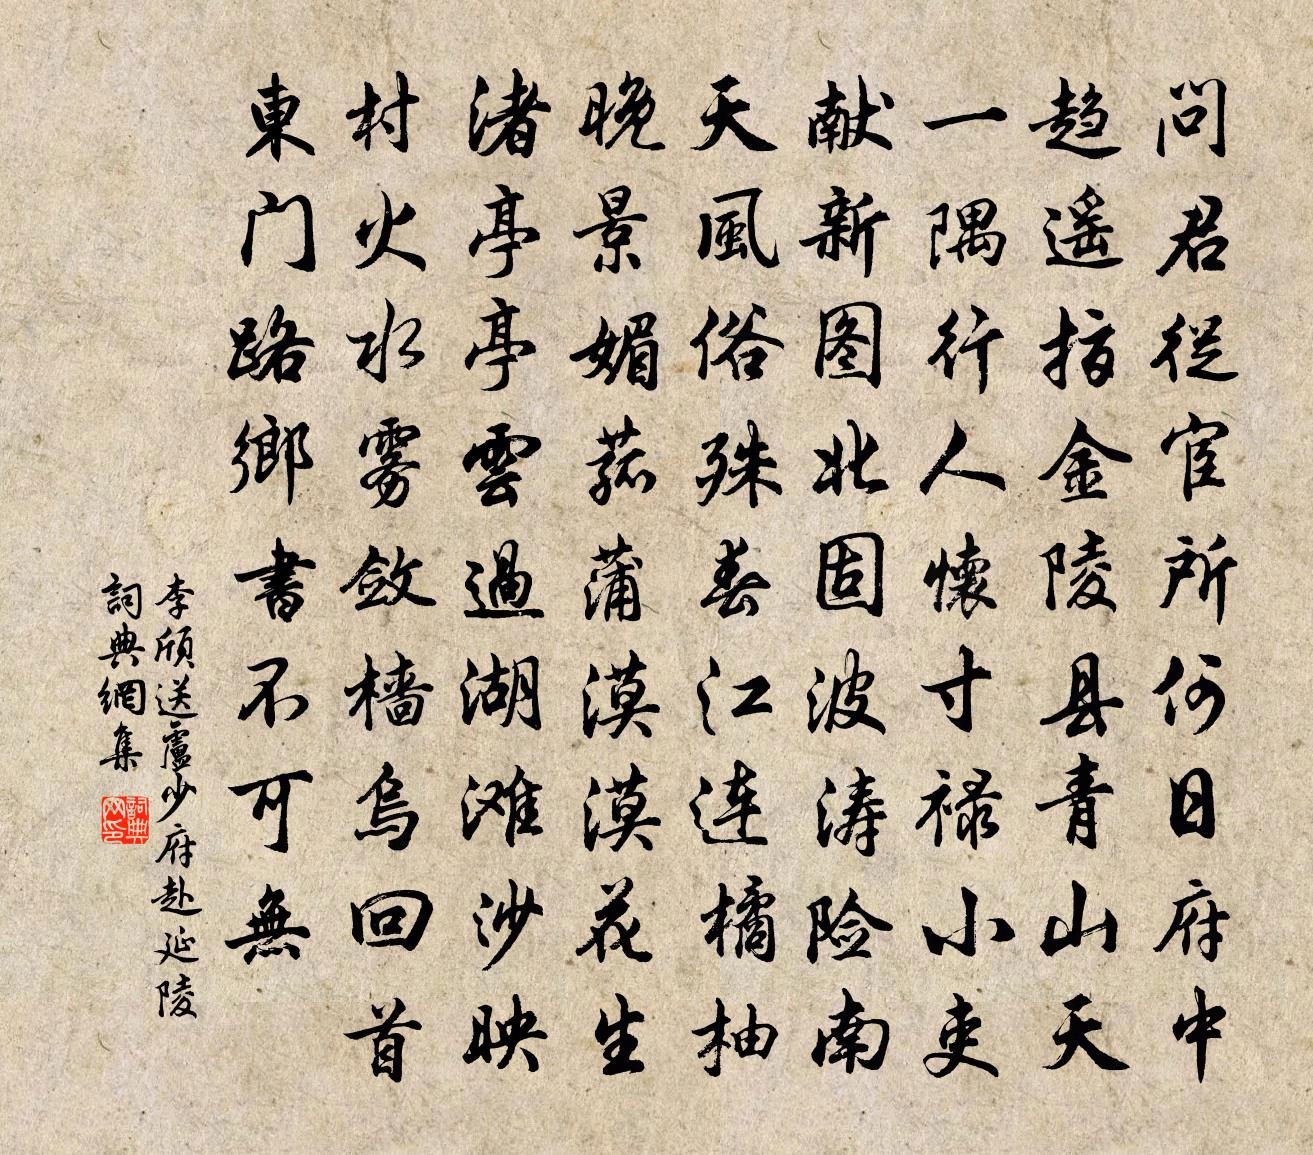 問君從宦所何日府中
趋遥指金陵县青山天
一隅行人懷寸禄小吏
献新图北固波涛险南
天風俗殊春江连橘柚
晚景媚菰蒲漠漠花生
渚亭亭雲過湖滩沙映
村火水雾敛檣烏回首
東门路鄉書不可無
李頎送盧少府赴延陵
詞典網集
詞典网印